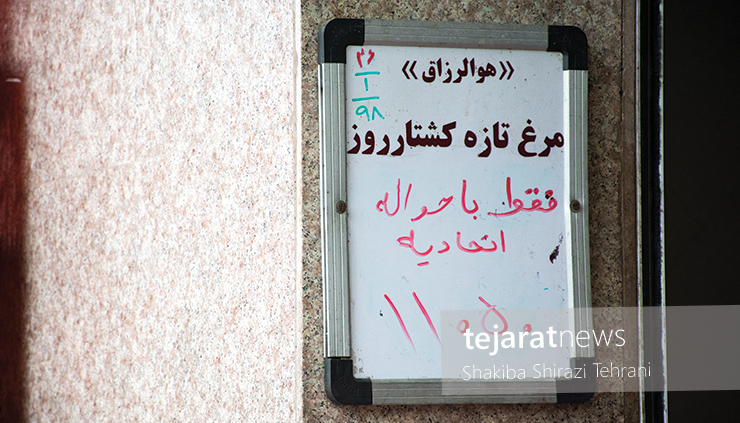 «هوالرزاق»
۲۶
۱
۹۸
مرغ تازه کشتارروز
فقط با حواله
اتحادیه
۱۱۰۵۰
tejaratnews
Shakiba Shirazi Tehrani